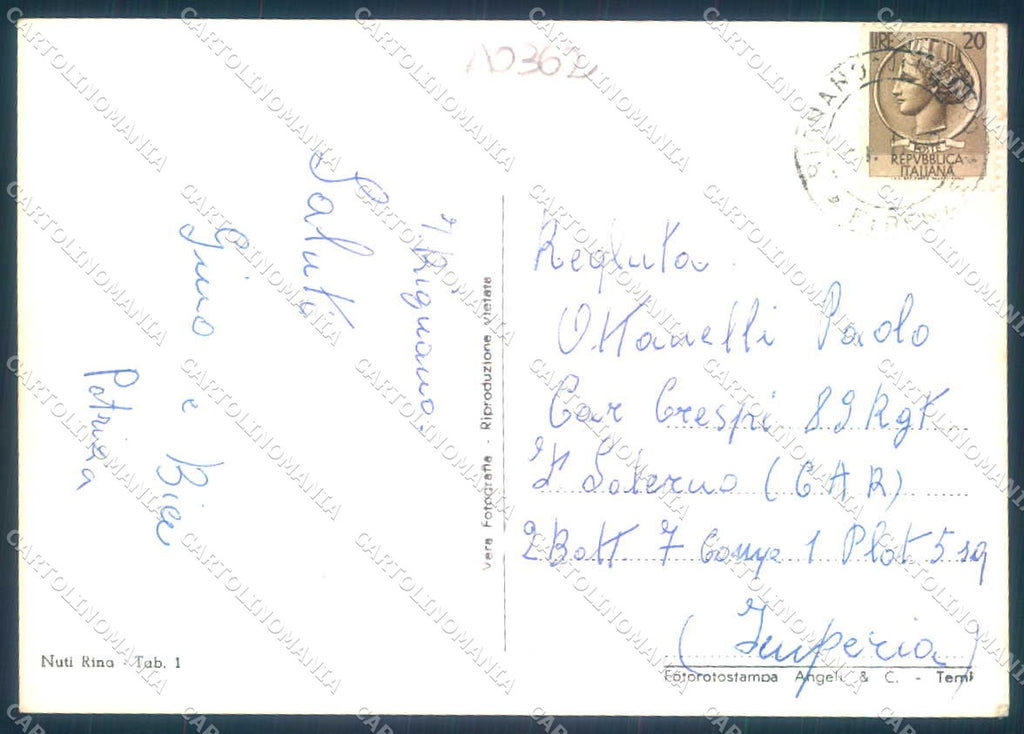 A0362
LIRE 20
POSTE
REPVBBLICA
ITALIANA
RIGNANO
FIRENZE
Rignano.
Saluti
Gino e Bice
Patrizia
vera Fotografia - Riproduzione vietata
Recluta
Ottanelli Paolo
Car Crespi 89 Rgt
Salerno (CAR)
2 Batt. 7 Comp 1 Plot 5 sq
(Imperia)
Nuti Rina - Tab. 1
Fotorotostampa Angeli & C. - Terni
CARTOLINOMANIA